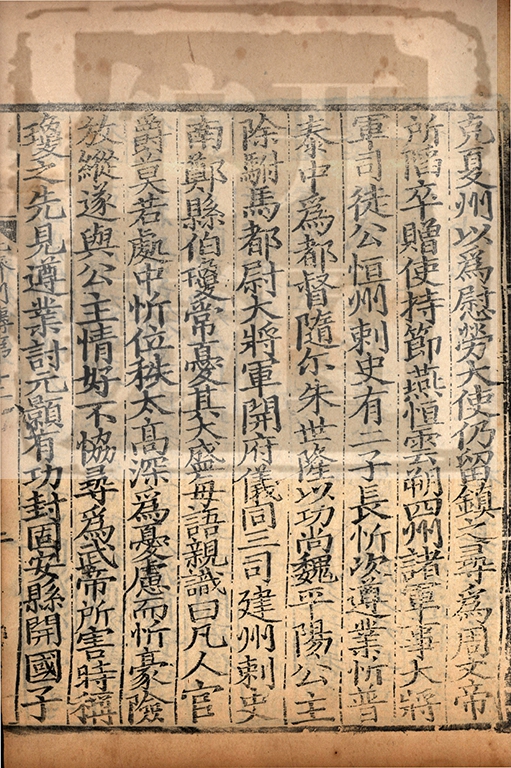 克夏州以爲慰勞大使仍留鎮之尋爲周文帝
所陷卒贈使持節燕恒雲朔四州諸軍事大將
軍司徒公恒州刺史有二子長忻次遵業忻普
泰中爲都督隨尒朱世隆以功尚魏平陽公主
除駙馬都尉大將軍開府儀同三司建州刺史
南鄭縣伯瓊常憂其大盛每語親識曰凡人官
爵莫若處中忻位秩太高深爲憂慮而忻豪險
放縱遂與公主情好不協尋爲武帝所害時稱
瓊之先見遵業討元顥有功封固安縣開國子